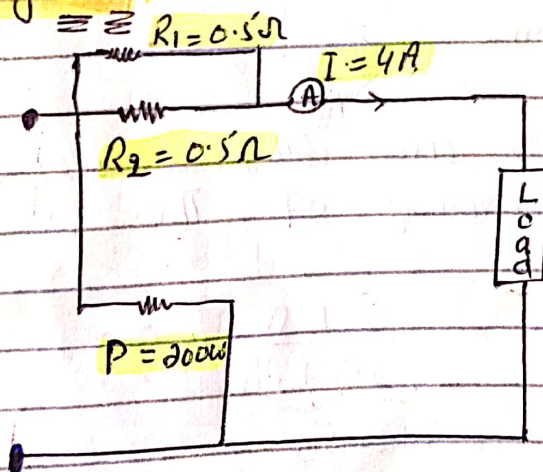 R1 = 0.5Ω
I = 4A
A
R2 = 0.5Ω
Load
P = 200W